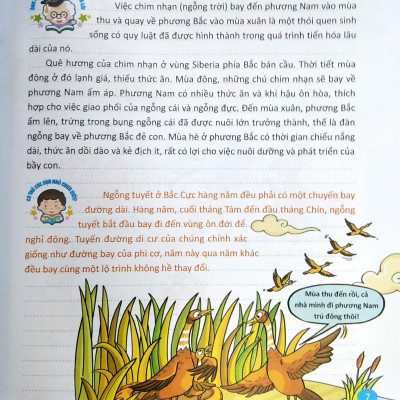 Việc chim nhạn (ngỗng trời) bay đến phương Nam vào mùa
thu và quay về phương Bắc vào mùa xuân là một thói quen sinh
sống có quy luật đã được hình thành trong quá trình tiến hóa lâu
dài của nó.
Quê hương của chim nhạn ở vùng Siberia phía Bắc bán cầu. Thời tiết mùa
đông ở đó lạnh giá, thiếu thức ăn. Mùa đông, những chú chim nhạn sẽ bay về
phương Nam ấm áp. Phương Nam có nhiều thức ăn và khí hậu ôn hòa, thích
hợp cho việc giao phối của ngỗng cái và ngỗng đực. Đến mùa xuân, phương Bắc
ấm lên, trứng trong bụng ngỗng cái đã được nuôi lớn trưởng thành, thế là đàn
ngỗng bay về phương Bắc đẻ con. Mùa hè ở phương Bắc có thời gian chiếu nắng
dài, thức ăn dồi dào và kẻ địch ít, rất có lợi cho việc nuôi dưỡng và phát triển của
bầy con.
CÓ THỂ CÁC BẠN NHỎ CHƯA BIẾT
Ngỗng tuyết ở Bắc Cực hàng năm đều phải có một chuyến bay
đường dài. Hàng năm, cuối tháng Tám đến đầu tháng Chín, ngỗng
tuyết bắt đầu bay đi đến vùng ôn đới để
nghỉ đông. Tuyến đường di cư của chúng chính xác
giống như đường bay của phi cơ, năm này qua năm khác
đều bay cùng một lộ trình không hề thay đổi.
Mùa thu đến rồi, cả
nhà mình đi phương Nam
trú đông thôi!
7